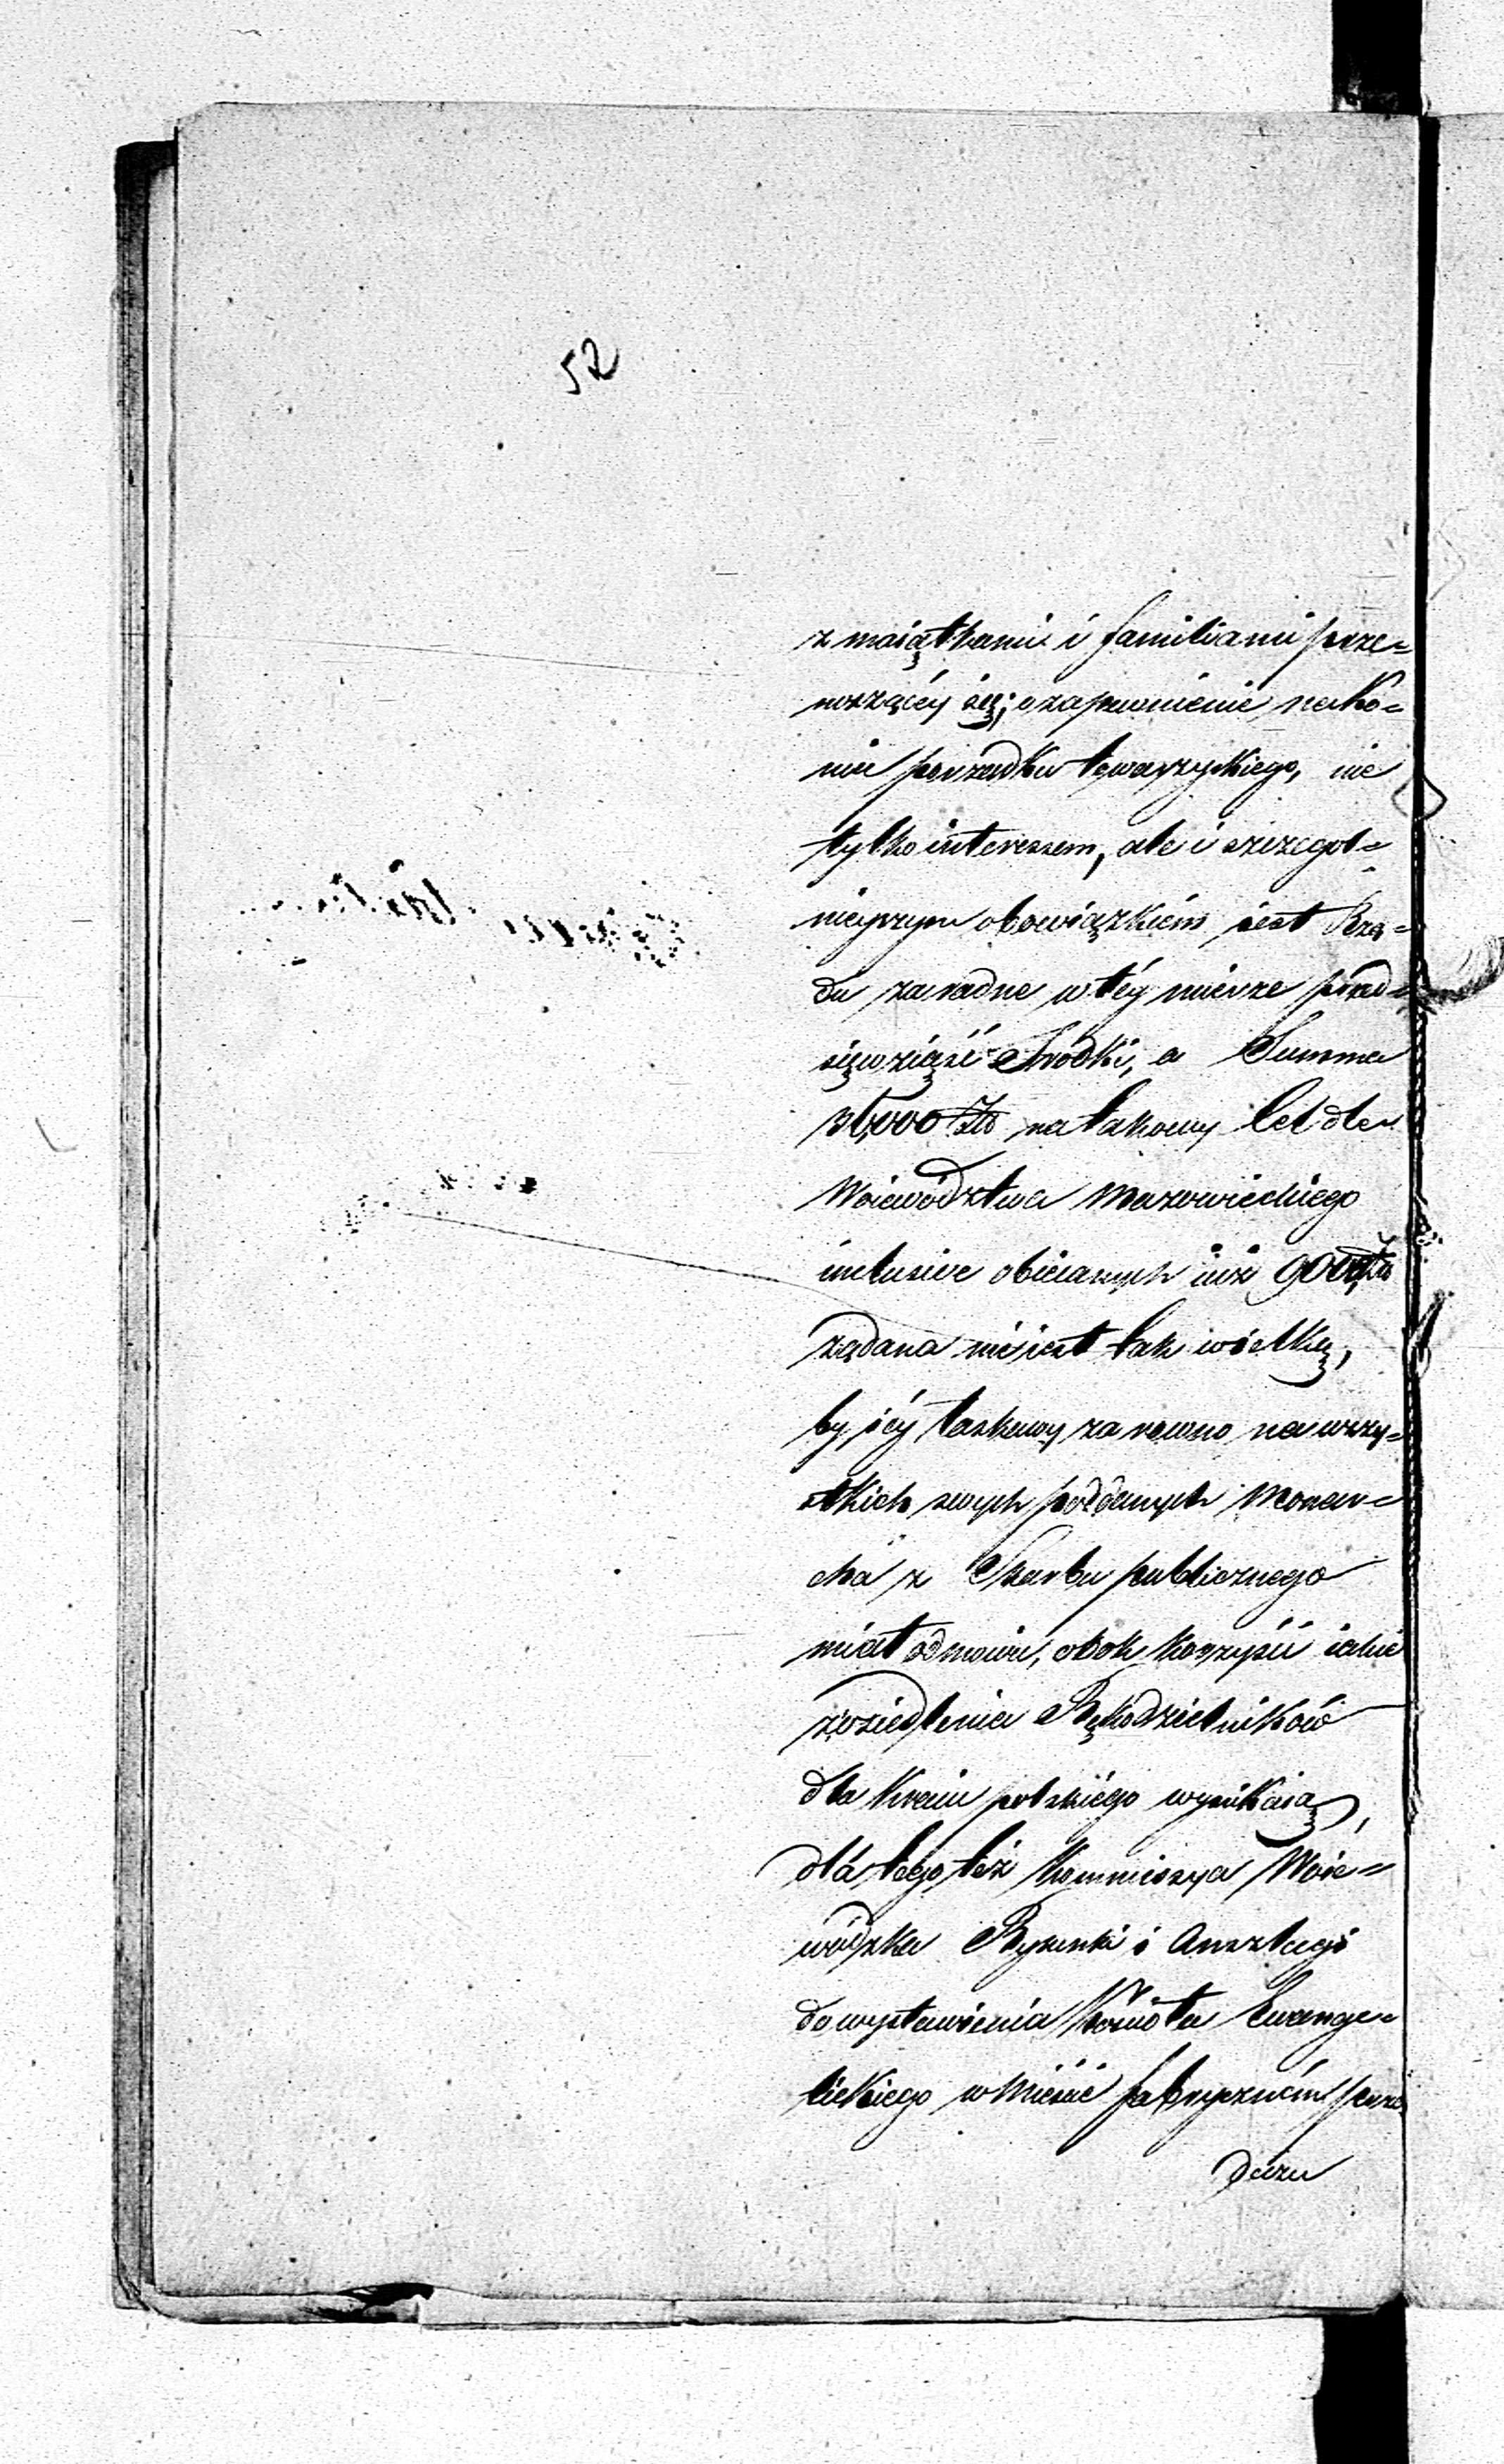 52
z maiątkami i familiami prze=
noszącéy się; a zapewnienie neko=
niu porządku towarzyskiego, nie
tylko interessem, ale i szczegol=
nieyszym obowiązkiem iest Rzą=
du zaradne w téy mierze przed=
sięwziąść Środki, a Summa
000 Złp na takowy Cel dla
Woiewództwa Mazowieckiego
inclusive obiecanych iuż 9000 Złp
żądana nie iest tak wielką,
by iéy łaskawy za rowno na wszy=
stkich swych poddanych Monar=
cha z Skarbu publicznego
miał odmowić, obok korzyści iakie
z osiedlenia Rękodzielników
dla Kraiu polskiégo wynikaią,
dla tego też Kommissya Woie=
wódzka Rysunki i Anszlagi
do wystawienia Kościoła Ewange=
lickiego w Mieście fabryczném